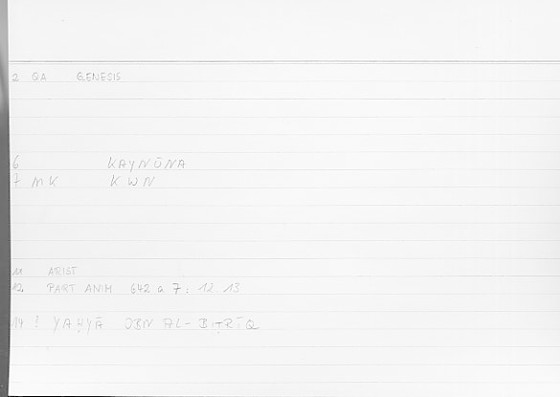 2 QA GENESIS
6 KAYNŪNA
7 MK KWN
11 ARIST
12. PART ANIM 642 a 7: 12 13
14 ! YAḤYĀ IBN AL-BIṬRĪQ